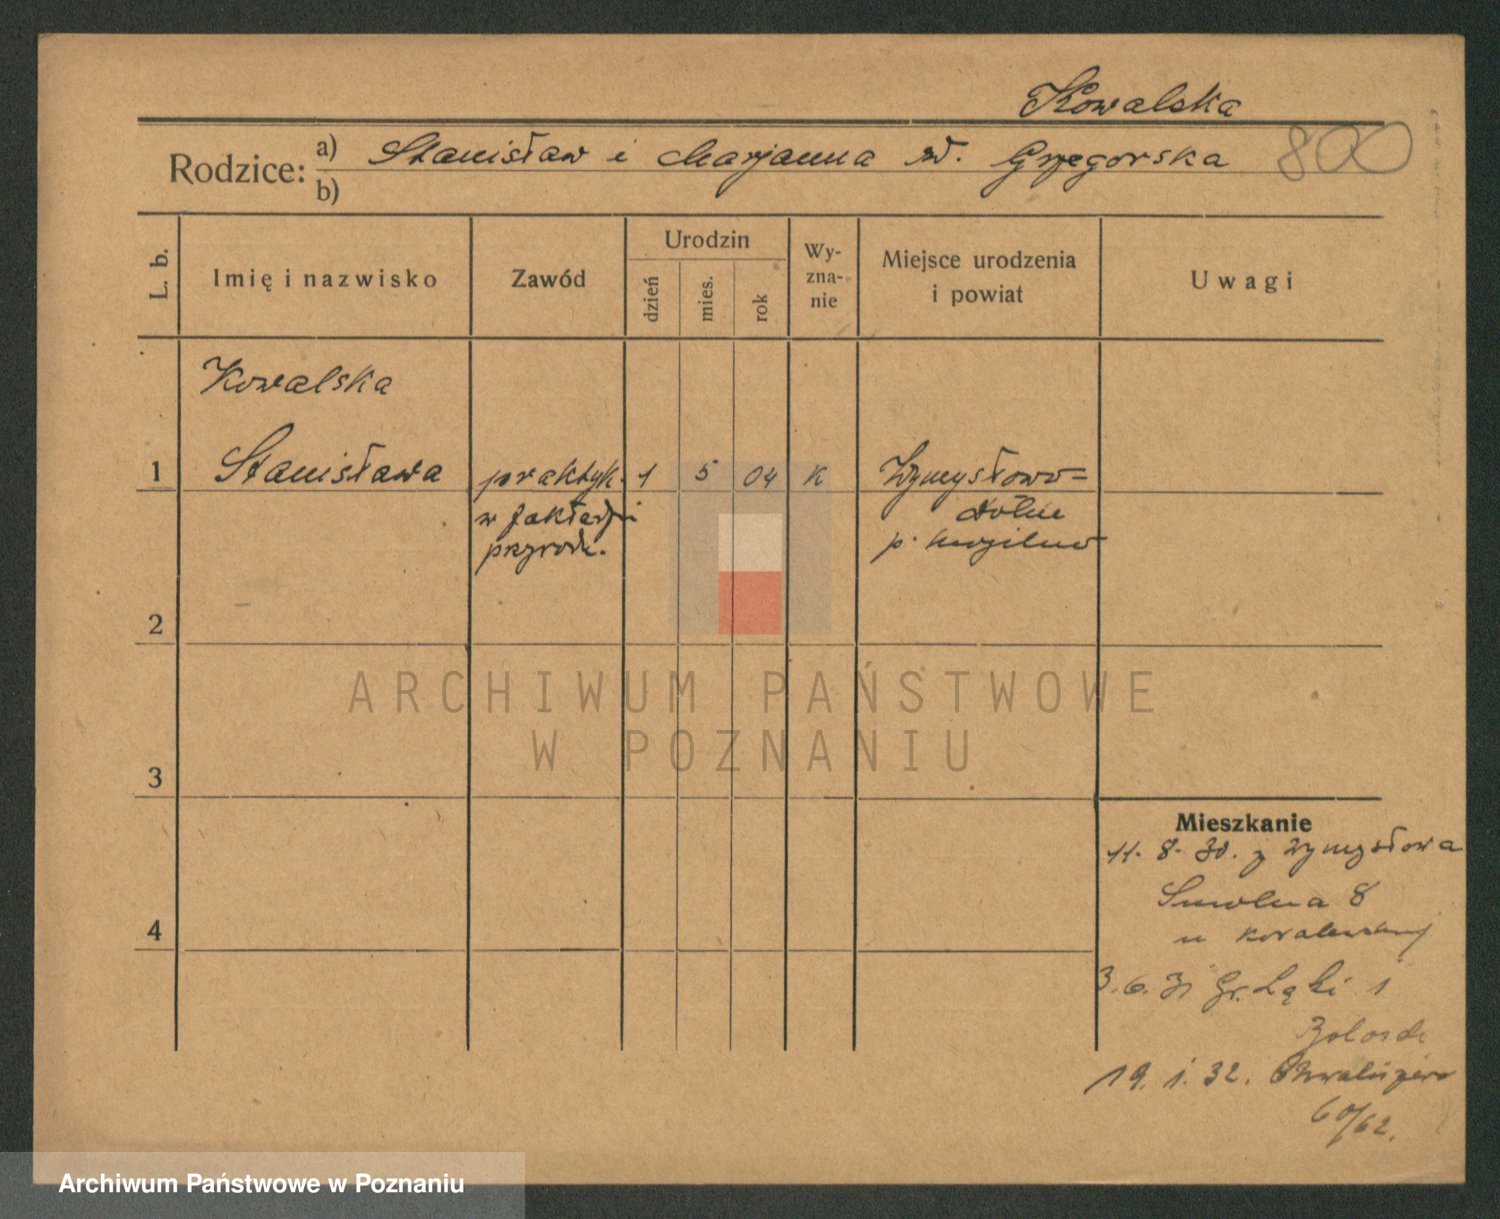 Kowalska
Rodzice: a) Stanisław i Marjanna rd. Grzegorska 800
b)
L. b.
Imię i nazwisko
Zawód
Urodzin
dzień
mies.
rok
Wy-
zna-
nie
Miejsce urodzenia
i powiat
Uwagi
Kowalska
1 Stanisława praktyk. 1 5 04 K Wymysłowo=
w zakładzi dólne
przyrod. p. Mogilno
2
ARCHIWUM PAŃSTWOWE
W POZNANIU
3
Mieszkanie
11. 8. 30. z Wymysłowa
Smolna 8
4
u
3. 6. 31 Gr. Łąki 1
19. 1. 32.
60/62.
Archiwum Państwowe w Poznaniu